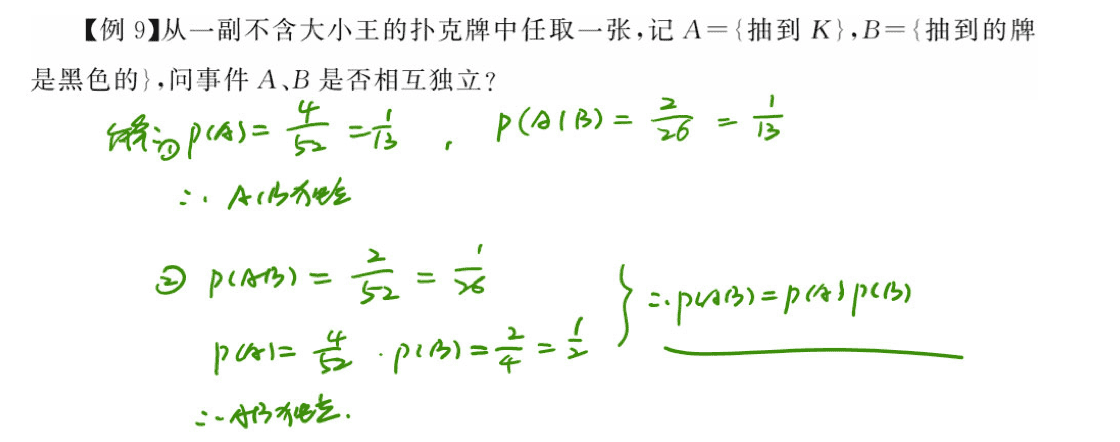 【例 9】从一副不含大小王的扑克牌中任取一张,记 A={抽到 K},B={抽到的牌
是黑色的},问事件 A、B 是否相互独立?
解:① P(A)=4/52=1/13 , P(A|B)=2/26=1/13
∴ A、B 独立
② P(AB)=2/52=1/26
P(A)=4/52 . P(B)=2/4=1/2 } ∴P(AB)=P(A)P(B)
∴ AB 独立.